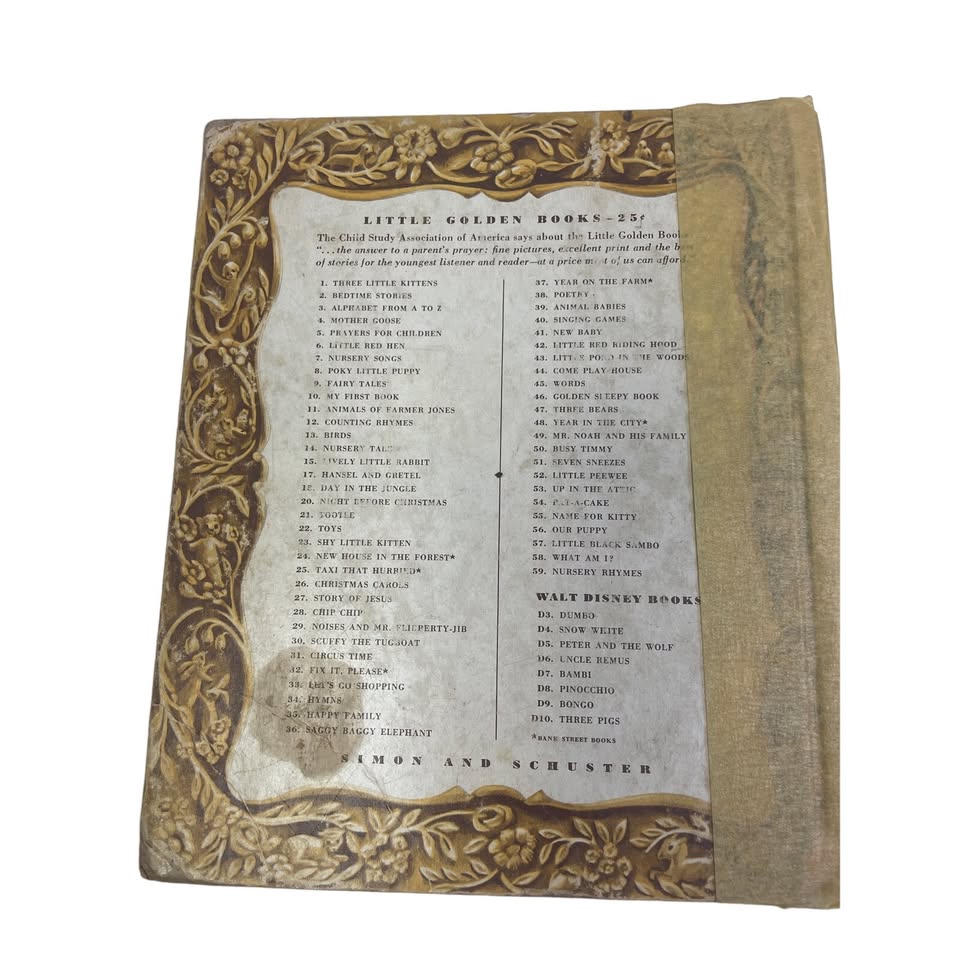 LITTLE GOLDEN BOOKS - 25¢
The Child Study Association of America says about the Little Golden Books
"...the answer to a parent's prayer: fine pictures, excellent print and the
of stories for the youngest listener and reader—at a price most of us can afford.
1. THREE LITTLE KITTENS
2. BEDTIME STORIES
3. ALPHABET FROM A TO Z
4. MOTHER GOOSE
5. PRAYERS FOR CHILDREN
6. LITTLE RED HEN
7. NURSERY SONGS
8. POKY LITTLE PUPPY
9. FAIRY TALES
10. MY FIRST BOOK
11. ANIMALS OF FARMER JONES
12. COUNTING RHYMES
13. BIRDS
14. NURSERY TALES
15. LIVELY LITTLE RABBIT
17. HANSEL AND GRETEL
18. DAY IN THE JUNGLE
20. NIGHT BEFORE CHRISTMAS
21. TOOTLE
22. TOYS
23. SHY LITTLE KITTEN
24. NEW HOUSE IN THE FOREST*
25. TAXI THAT HURRIED*
26. CHRISTMAS CAROLS
27. STORY OF JESUS
28. CHIP CHIP
29. NOISES AND MR. FLIBBERTY-JIB
30. SCUFFY THE TUGBOAT
31. CIRCUS TIME
32. FIX IT, PLEASE*
33. LET'S GO SHOPPING
34. HYMNS
35. HAPPY FAMILY
36. SAGGY BAGGY ELEPHANT
37. YEAR ON THE FARM*
38. POETRY
39. ANIMAL BABIES
40. SINGING GAMES
41. NEW BABY
42. LITTLE RED RIDING HOOD
43. LITTLE POND IN THE WOODS
44. COME PLAY HOUSE
45. WORDS
46. GOLDEN SLEEPY BOOK
47. THREE BEARS
48. YEAR IN THE CITY*
49. MR. NOAH AND HIS FAMILY
50. BUSY TIMMY
51. SEVEN SNEEZES
52. LITTLE PEEWEE
53. UP IN THE ATTIC
54. PAT-A-CAKE
55. NAME FOR KITTY
56. OUR PUPPY
57. LITTLE BLACK SAMBO
58. WHAT AM I?
59. NURSERY RHYMES
WALT DISNEY BOOKS
D3. DUMBO
D4. SNOW WHITE
D5. PETER AND THE WOLF
D6. UNCLE REMUS
D7. BAMBI
D8. PINOCCHIO
D9. BONGO
D10. THREE PIGS
*BANK STREET BOOKS
SIMON AND SCHUSTER